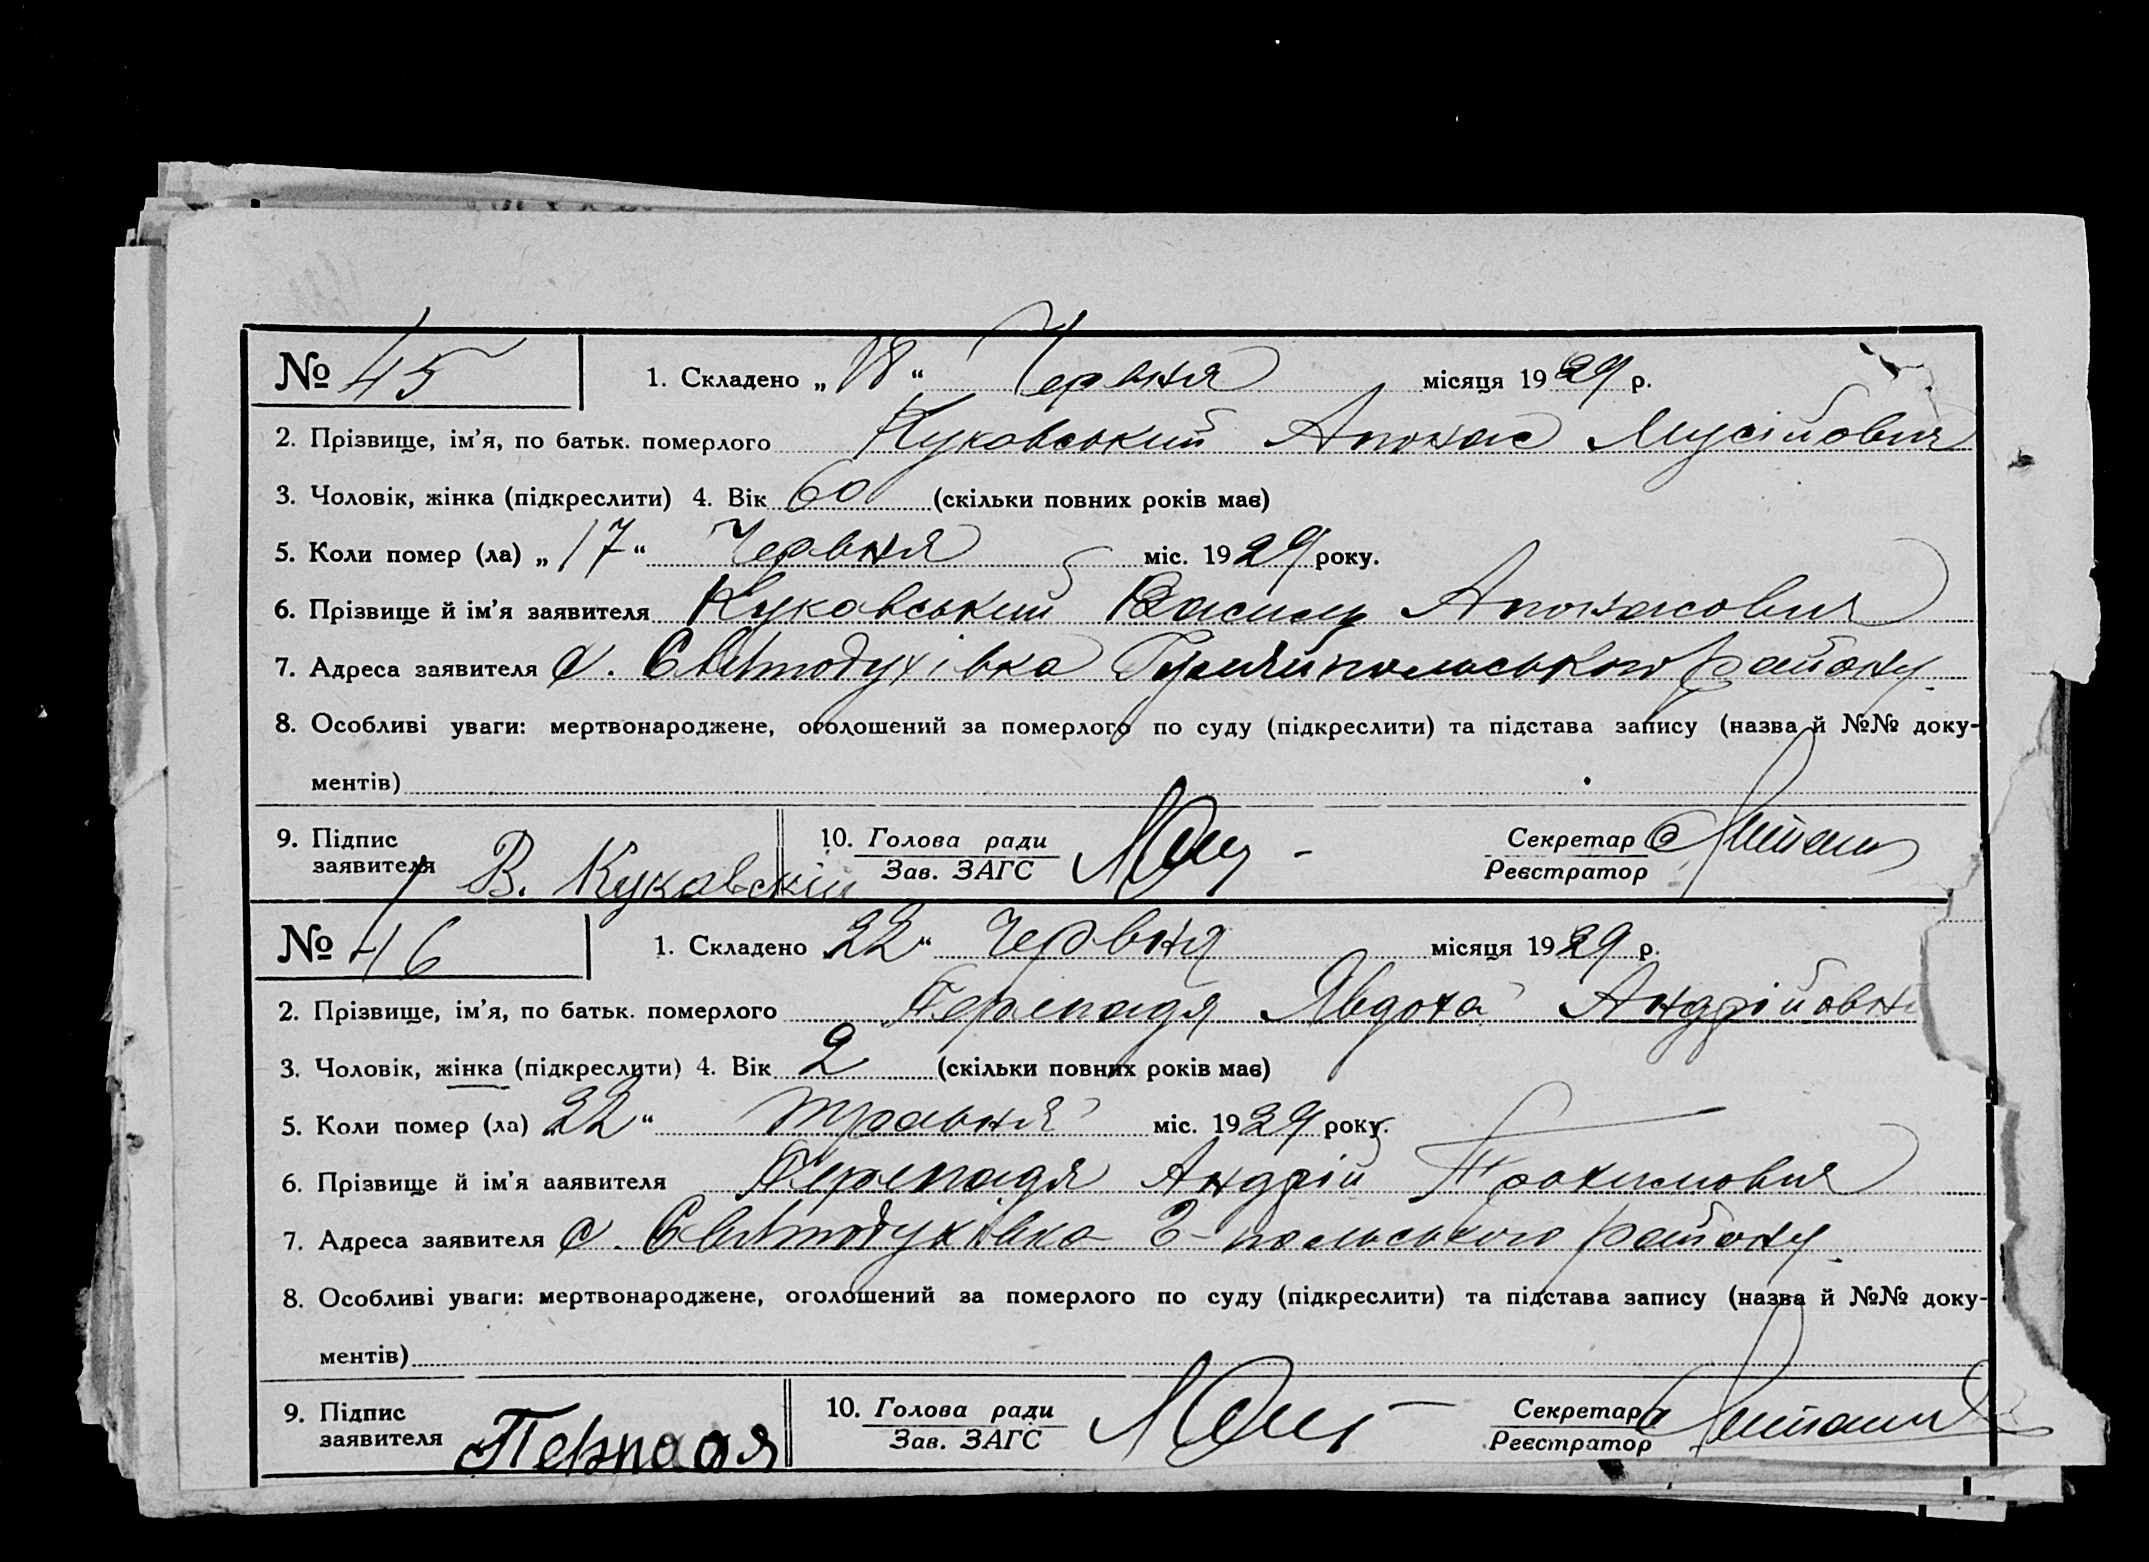 № 45 1. Складено „ 18 “ Червня місяця 1929 р.
2. Прізвище, ім’я, по батьк. померлого Куковський Апонас Мусійович
3. Чоловік, жінка (підкреслити) 4. Вік 60 (скільки повних років має)
5. Коли помер (ла) „ 17 “ Червня міс. 1929 року.
6. Прізвище й ім’я заявителя Куковський Василь Апонасович
7. Адреса заявителя с. Святодухівка Гуляйпольського району
8. Особливі уваги: мертвонароджене, оголошений за померлого по суду (підкреслити) та підстава запису (назва й №№ доку-
ментів)
9. Підпис заявителя В. Куковскій 10. Голова ради Зав. ЗАГС Секретар Реєстратор
№ 46 1. Складено 22 “ червня місяця 1929 р.
2. Прізвище, ім’я, по батьк. померлого Перепадя Явдоха Андрійовн
3. Чоловік, жінка (підкреслити) 4. Вік 2 (скільки повних років має)
5. Коли помер (ла) 22 “ травня міс. 1929 року.
6. Прізвище й ім’я заявителя Перепадя Андрій Трохимович
7. Адреса заявителя с. Святодухівка Г-польського району
8. Особливі уваги: мертвонароджене, оголошений за померлого по суду (підкреслити) та підстава запису (назва й №№ доку-
ментів)
9. Підпис заявителя 10. Голова ради Зав. ЗАГС Секретар Реєстратор